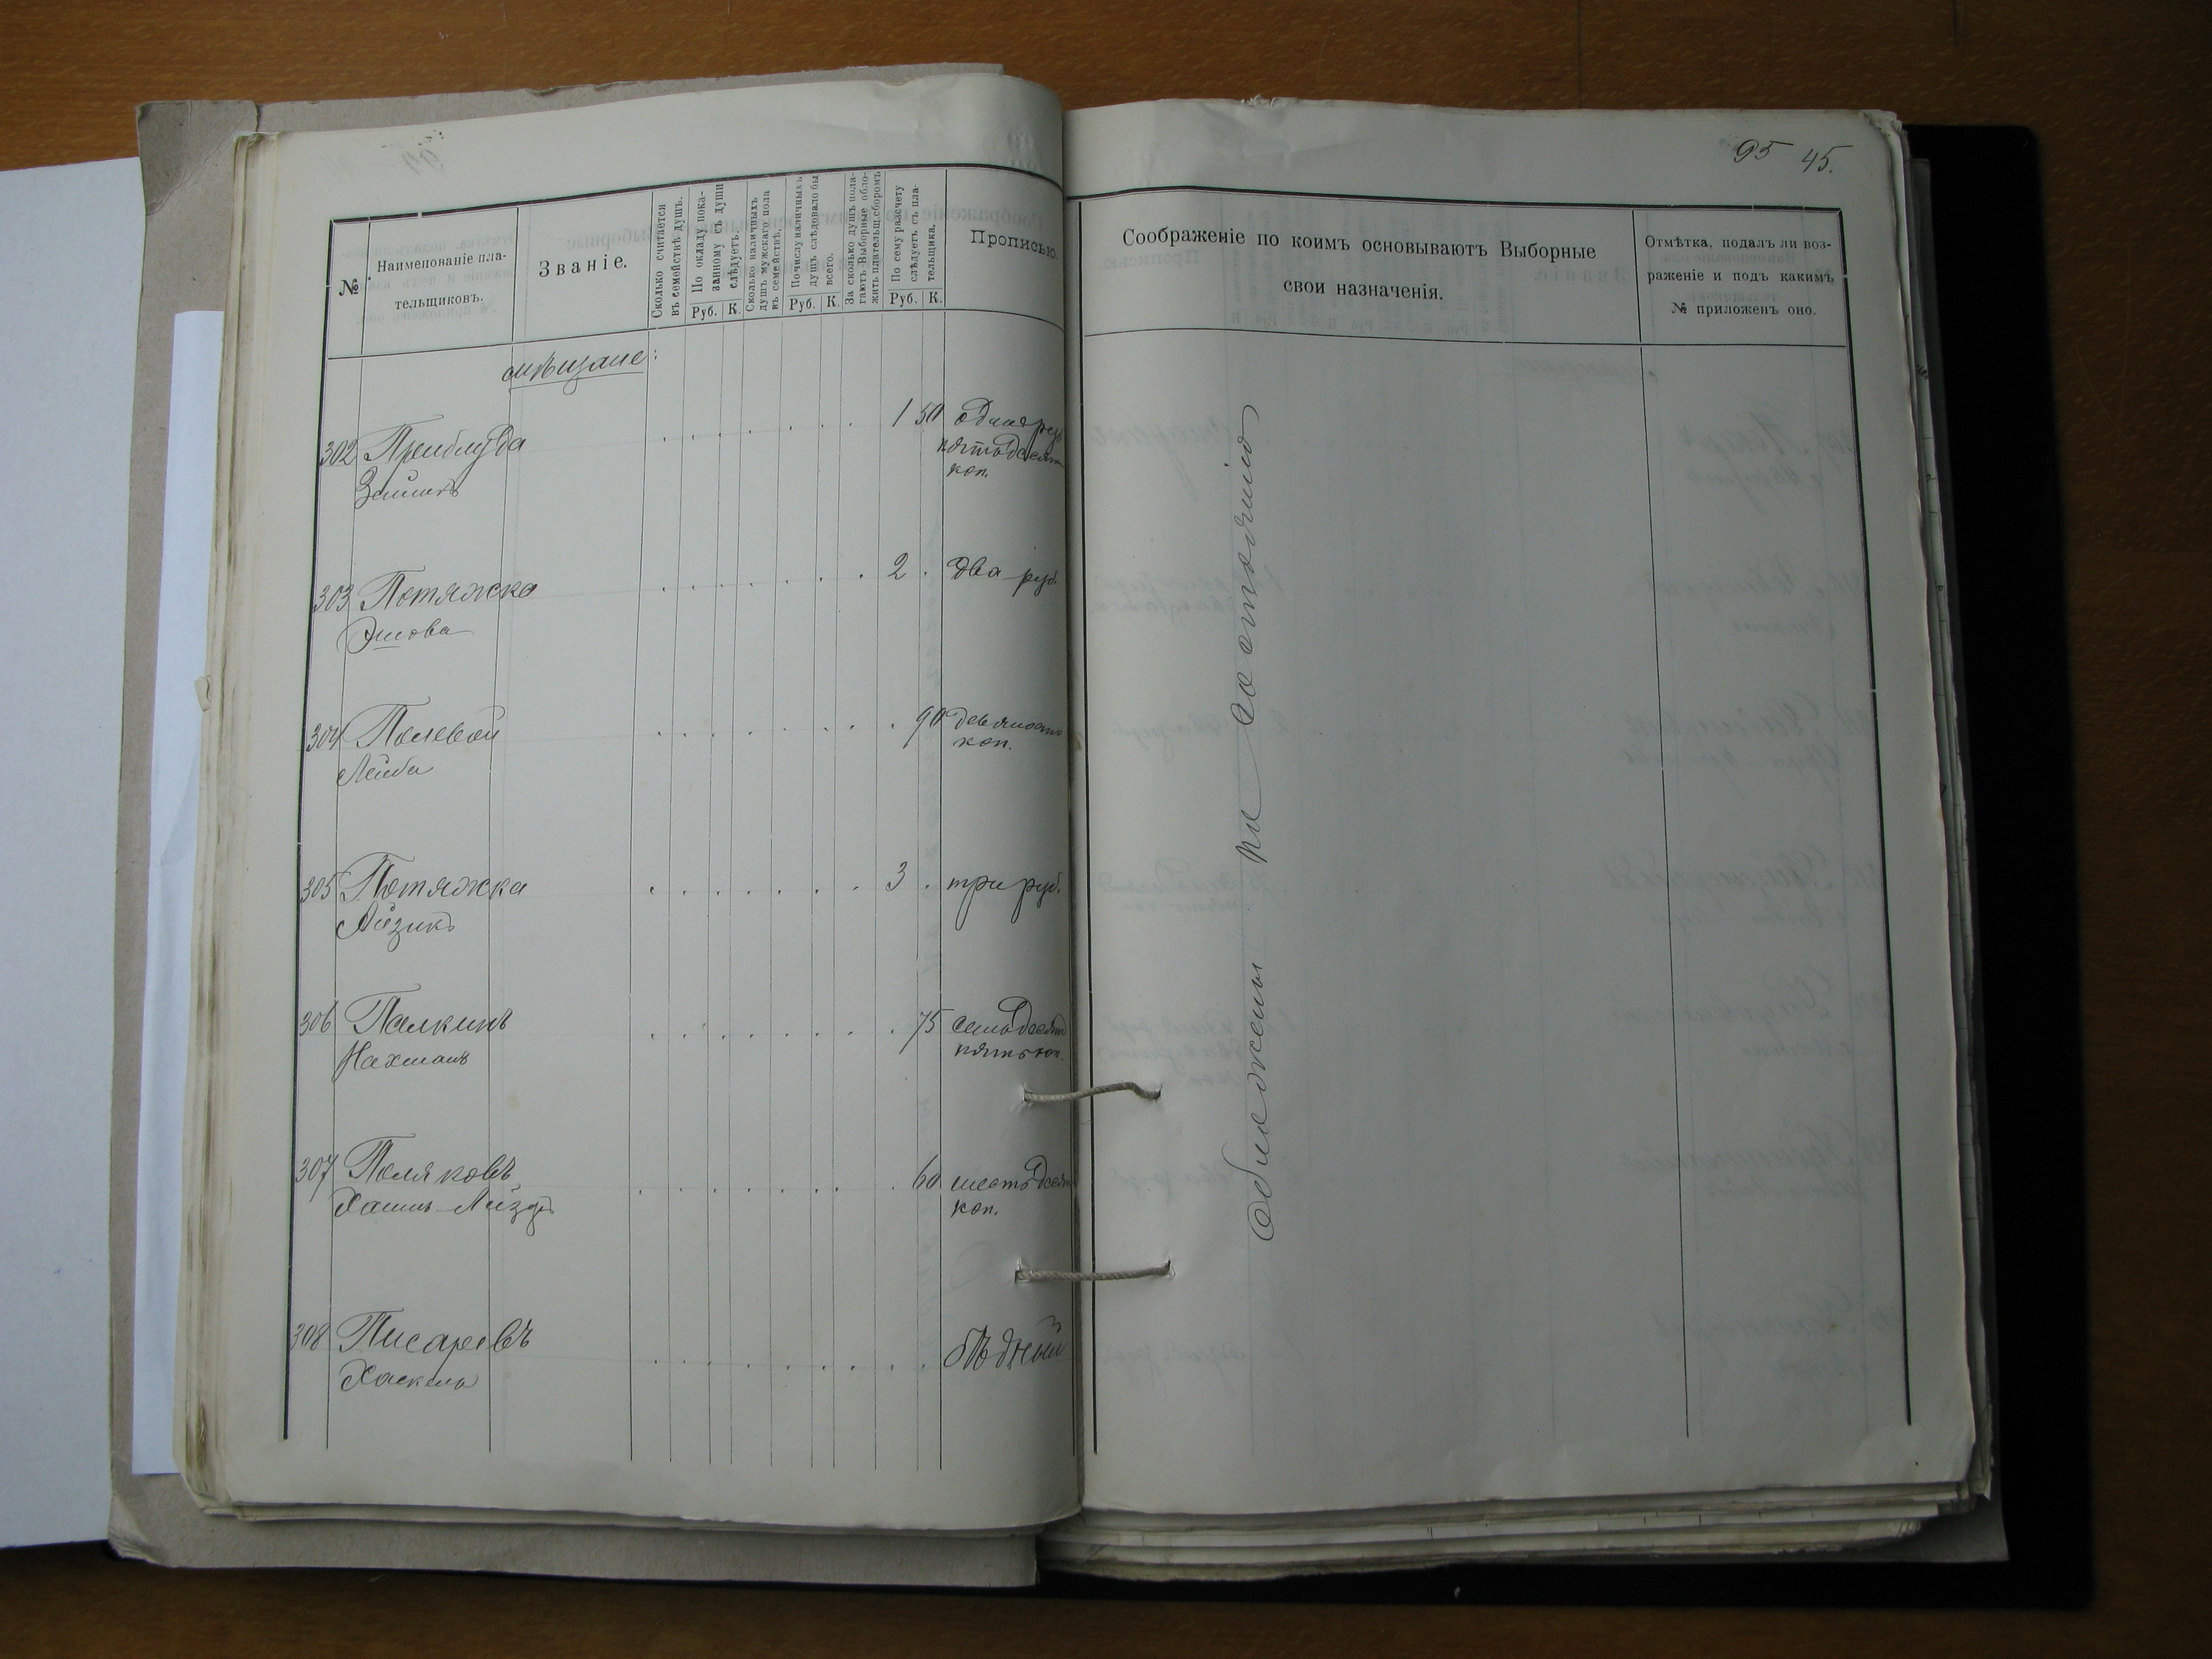 95 45.
№
Наименованіе пла-
тельщиковъ.
Званіе.
Сколько считается
въ семействѣ душъ.
По окладу пока-
занному съ души
слѣдуетъ.
Руб. К.
Сколько наличныхъ
душъ мужскаго пола
въ семействѣ.
По числу наличныхъ
душъ слѣдовало бы
всего.
Руб. К.
За сколько душъ пола-
гаютъ Выборные обло-
жить плательщ. сборомъ
По сему разсчету
слѣдуетъ съ пла-
тельщика.
Руб. К.
Прописью.
Соображеніе по коимъ основываютъ Выборные
свои назначенія.
Отмѣтка, подалъ ли воз-
раженіе и подъ какимъ
№ приложенъ оно.
мѣщане:
302 Приблуда 1 50 одинъ руб
пятьдесят
коп.
303 Потяжка 2 . два руб.
304 Полевой 90 девяносто
коп.
Лейба
305 Потяжка 3 . три руб.
Айзикъ
306 Палкинъ 75 семьдесят
пять коп.
Нахманъ
307 Поляковъ 60 шестьдесят
коп.
308 Писаревъ бѣдный
Хаскель
Обложены по состоянію